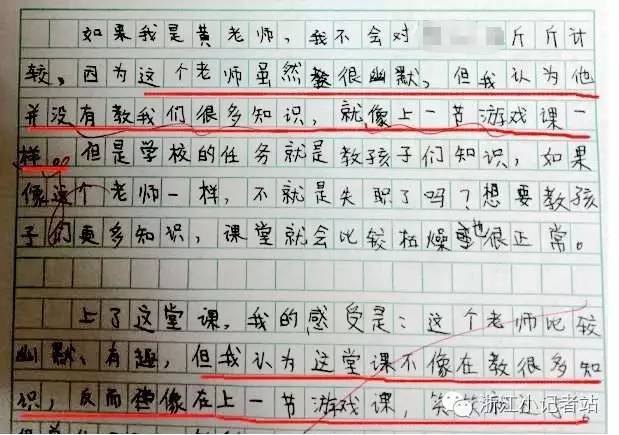 如果我是黄老师，我不会对 斤斤计
较，因为这个老师虽然教很幽默，但我认为他
并没有教我们很多知识，就像上一节游戏课一
样。但是学校的任务就是教孩子们知识，如果
像这个老师一样，不就是失职了吗？想要教孩
子们更多知识，课堂就会比较枯燥也很正常。
上了这堂课，我的感受是：这个老师比较
幽默、有趣，但我认为这堂课不像在教很多知
识，反而像在上一节游戏课，
浙江小记者站